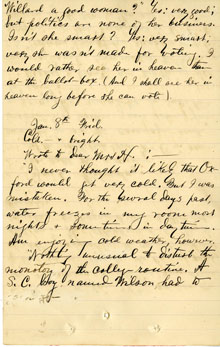 Willard a good woman? Yes; very good;
but politics are none of her business.
Isn't she smart? Yes; very smart;
very, she wasn't made for voting. I
would rather see her in heaven than
at the ballot-box. (And I shall see her in
heaven long before she can vote).
Jan. 8th Frid.
Cold - & bright.
Wrote to Dear Mrs H. :
"I never thought it likely that Ox
ford would get very cold. But I was
mistaken. For the several days past,
water freezes in my room most
nights & sometimes in daytime.
Am enjoying cold weather, however.
Nothing unusual to disturb the
monotony of the college routine. A
S. C. boy named Wilson had to